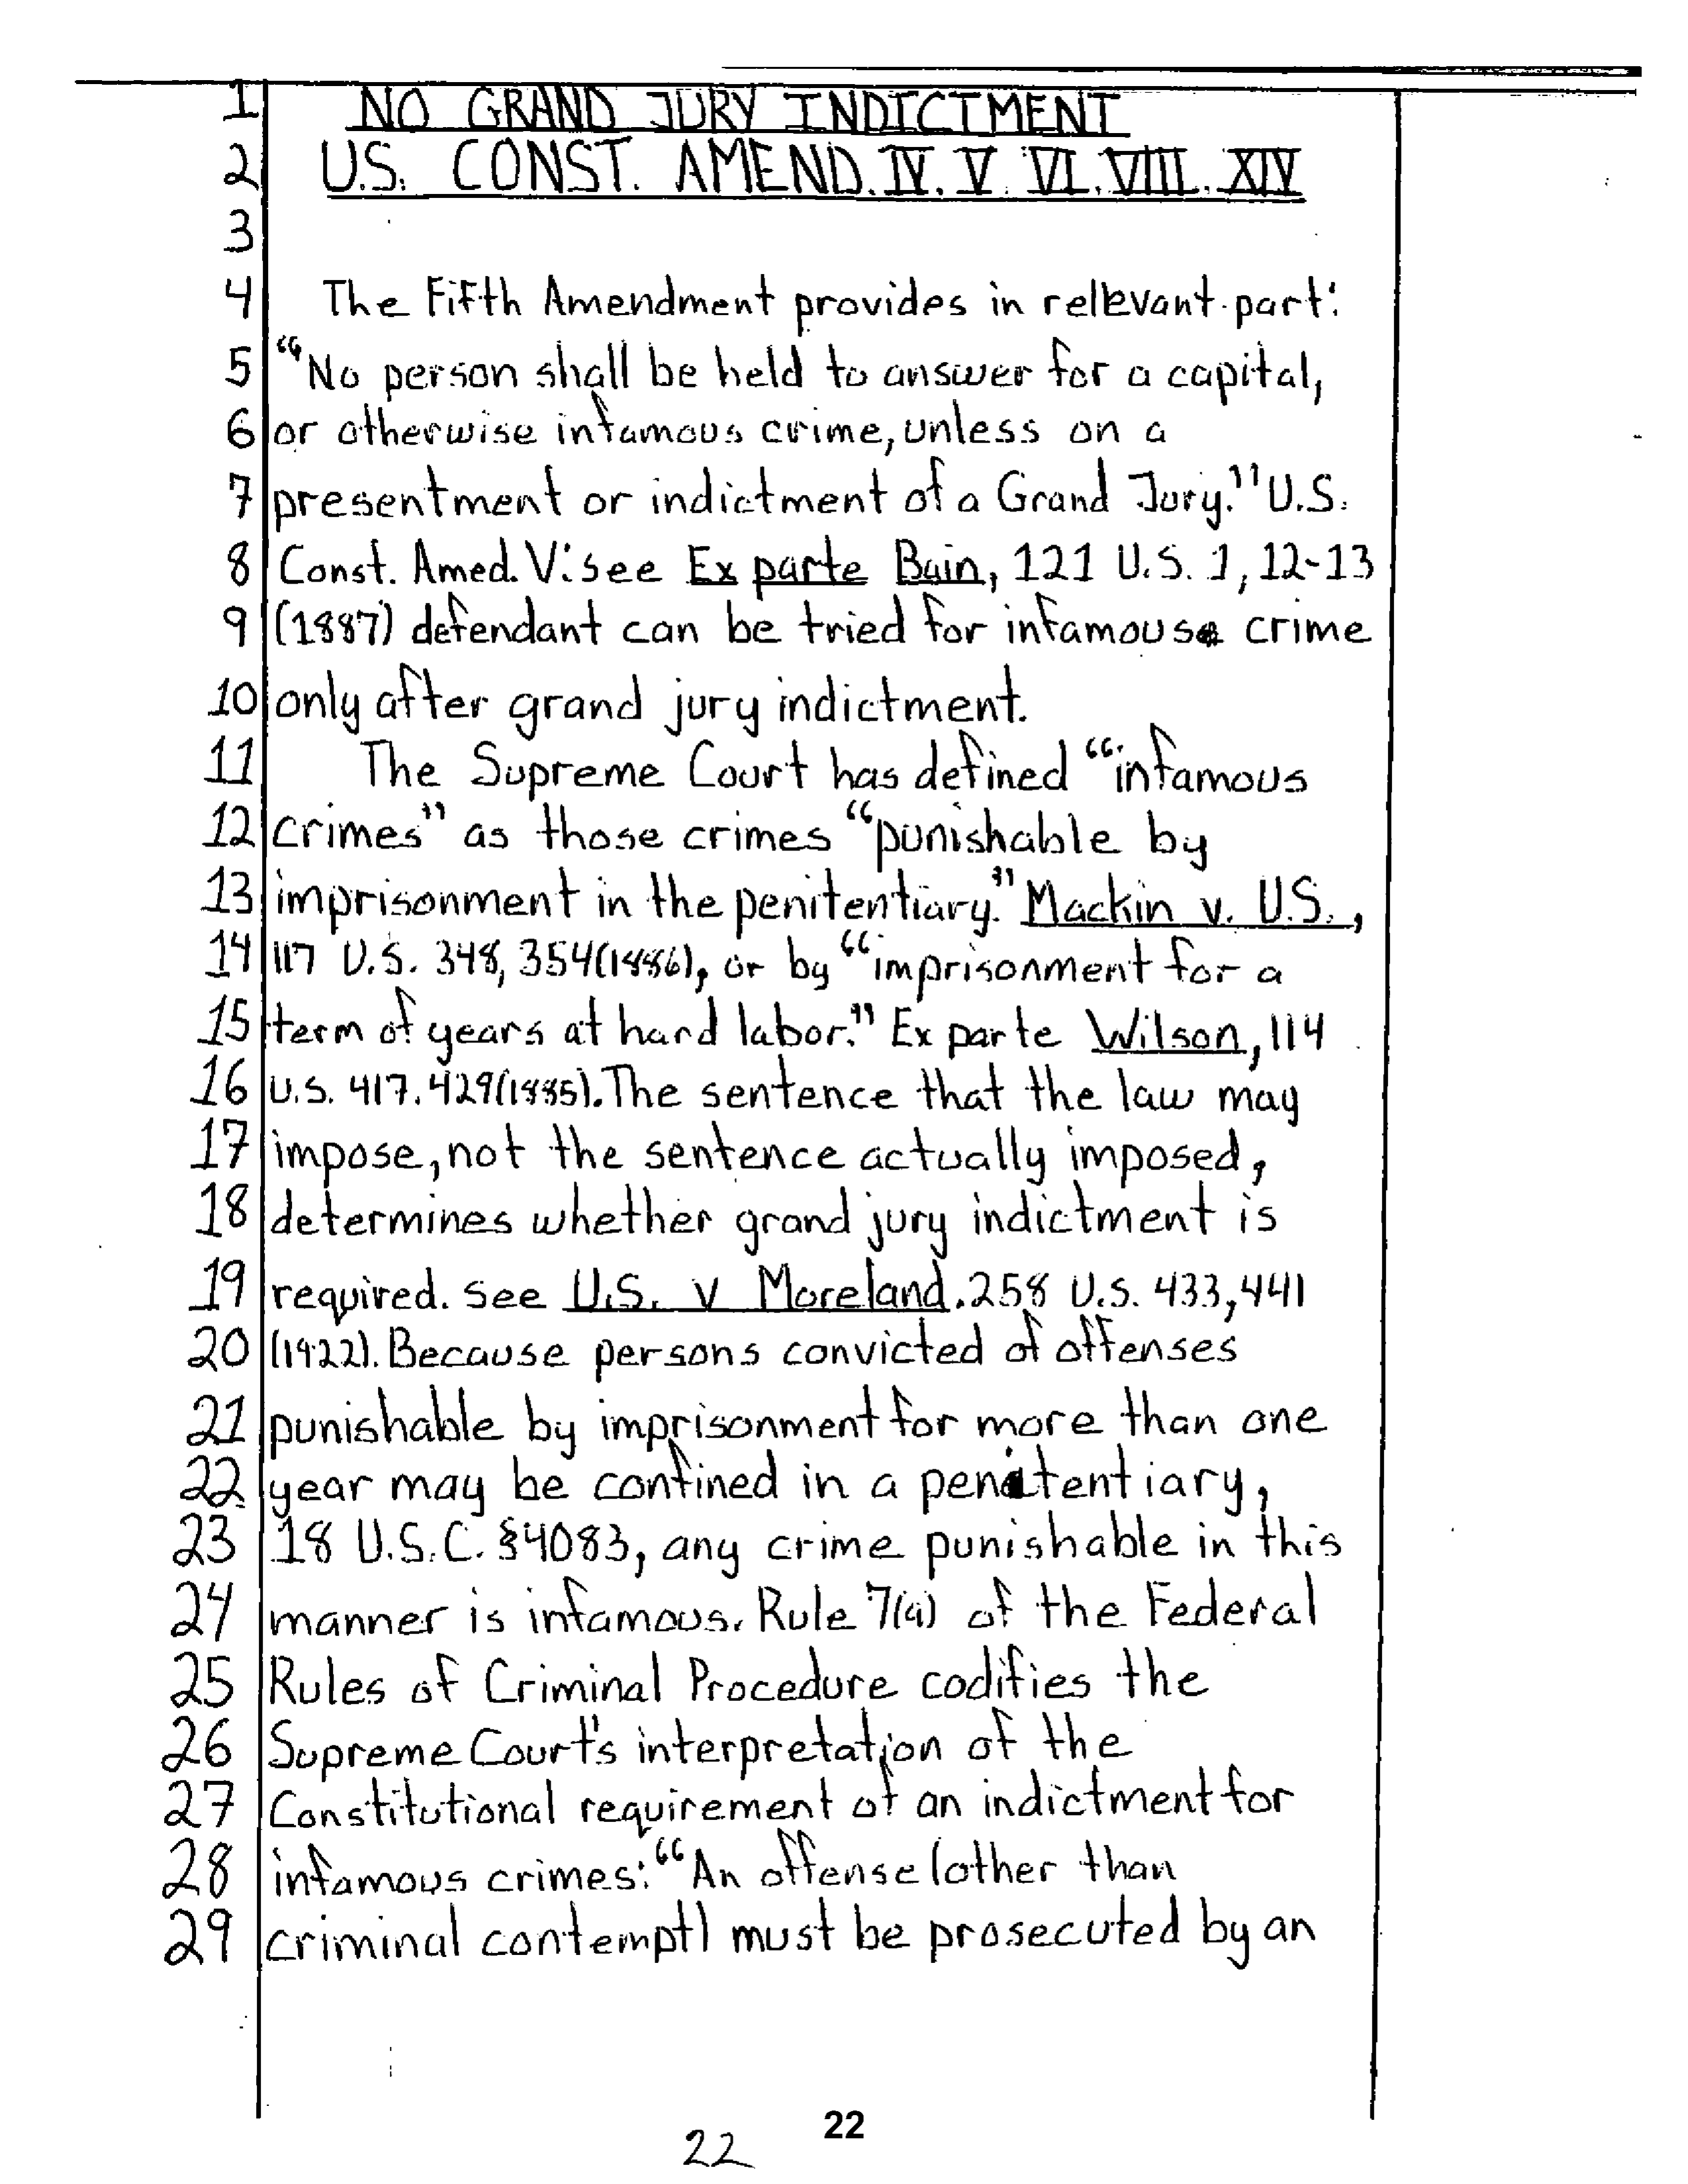 1 NO GRAND JURY INDICTMENT
2 U.S. CONST. AMEND. IV. V. VI. VIII. XIV
3
4 The Fifth Amendment provides in relevant part:
5 "No person shall be held to answer for a capital,
6 or otherwise infamous crime, unless on a
7 presentment or indictment of a Grand Jury." U.S.
8 Const. Amed. V: see Ex parte Bain, 121 U.S. 1, 12-13
9 (1887) defendant can be tried for infamous crime
10 only after grand jury indictment.
11 The Supreme Court has defined "infamous
12 crimes" as those crimes "punishable by
13 imprisonment in the penitentiary." Mackin v. U.S.,
14 117 U.S. 348, 354(1886), or by "imprisonment for a
15 term of years at hard labor." Ex parte Wilson, 114
16 U.S. 417. 429(1885). The sentence that the law may
17 impose, not the sentence actually imposed,
18 determines whether grand jury indictment is
19 required. See U.S. v Moreland. 258 U.S. 433, 441
20 (1922). Because persons convicted of offenses
21 punishable by imprisonment for more than one
22 year may be confined in a penitentiary,
23 18 U.S.C. §4083, any crime punishable in this
24 manner is infamous. Rule 7(a) of the Federal
25 Rules of Criminal Procedure codifies the
26 Supreme Court's interpretation of the
27 Constitutional requirement of an indictment for
28 infamous crimes: "An offense (other than
29 criminal contempt) must be prosecuted by an
22
22